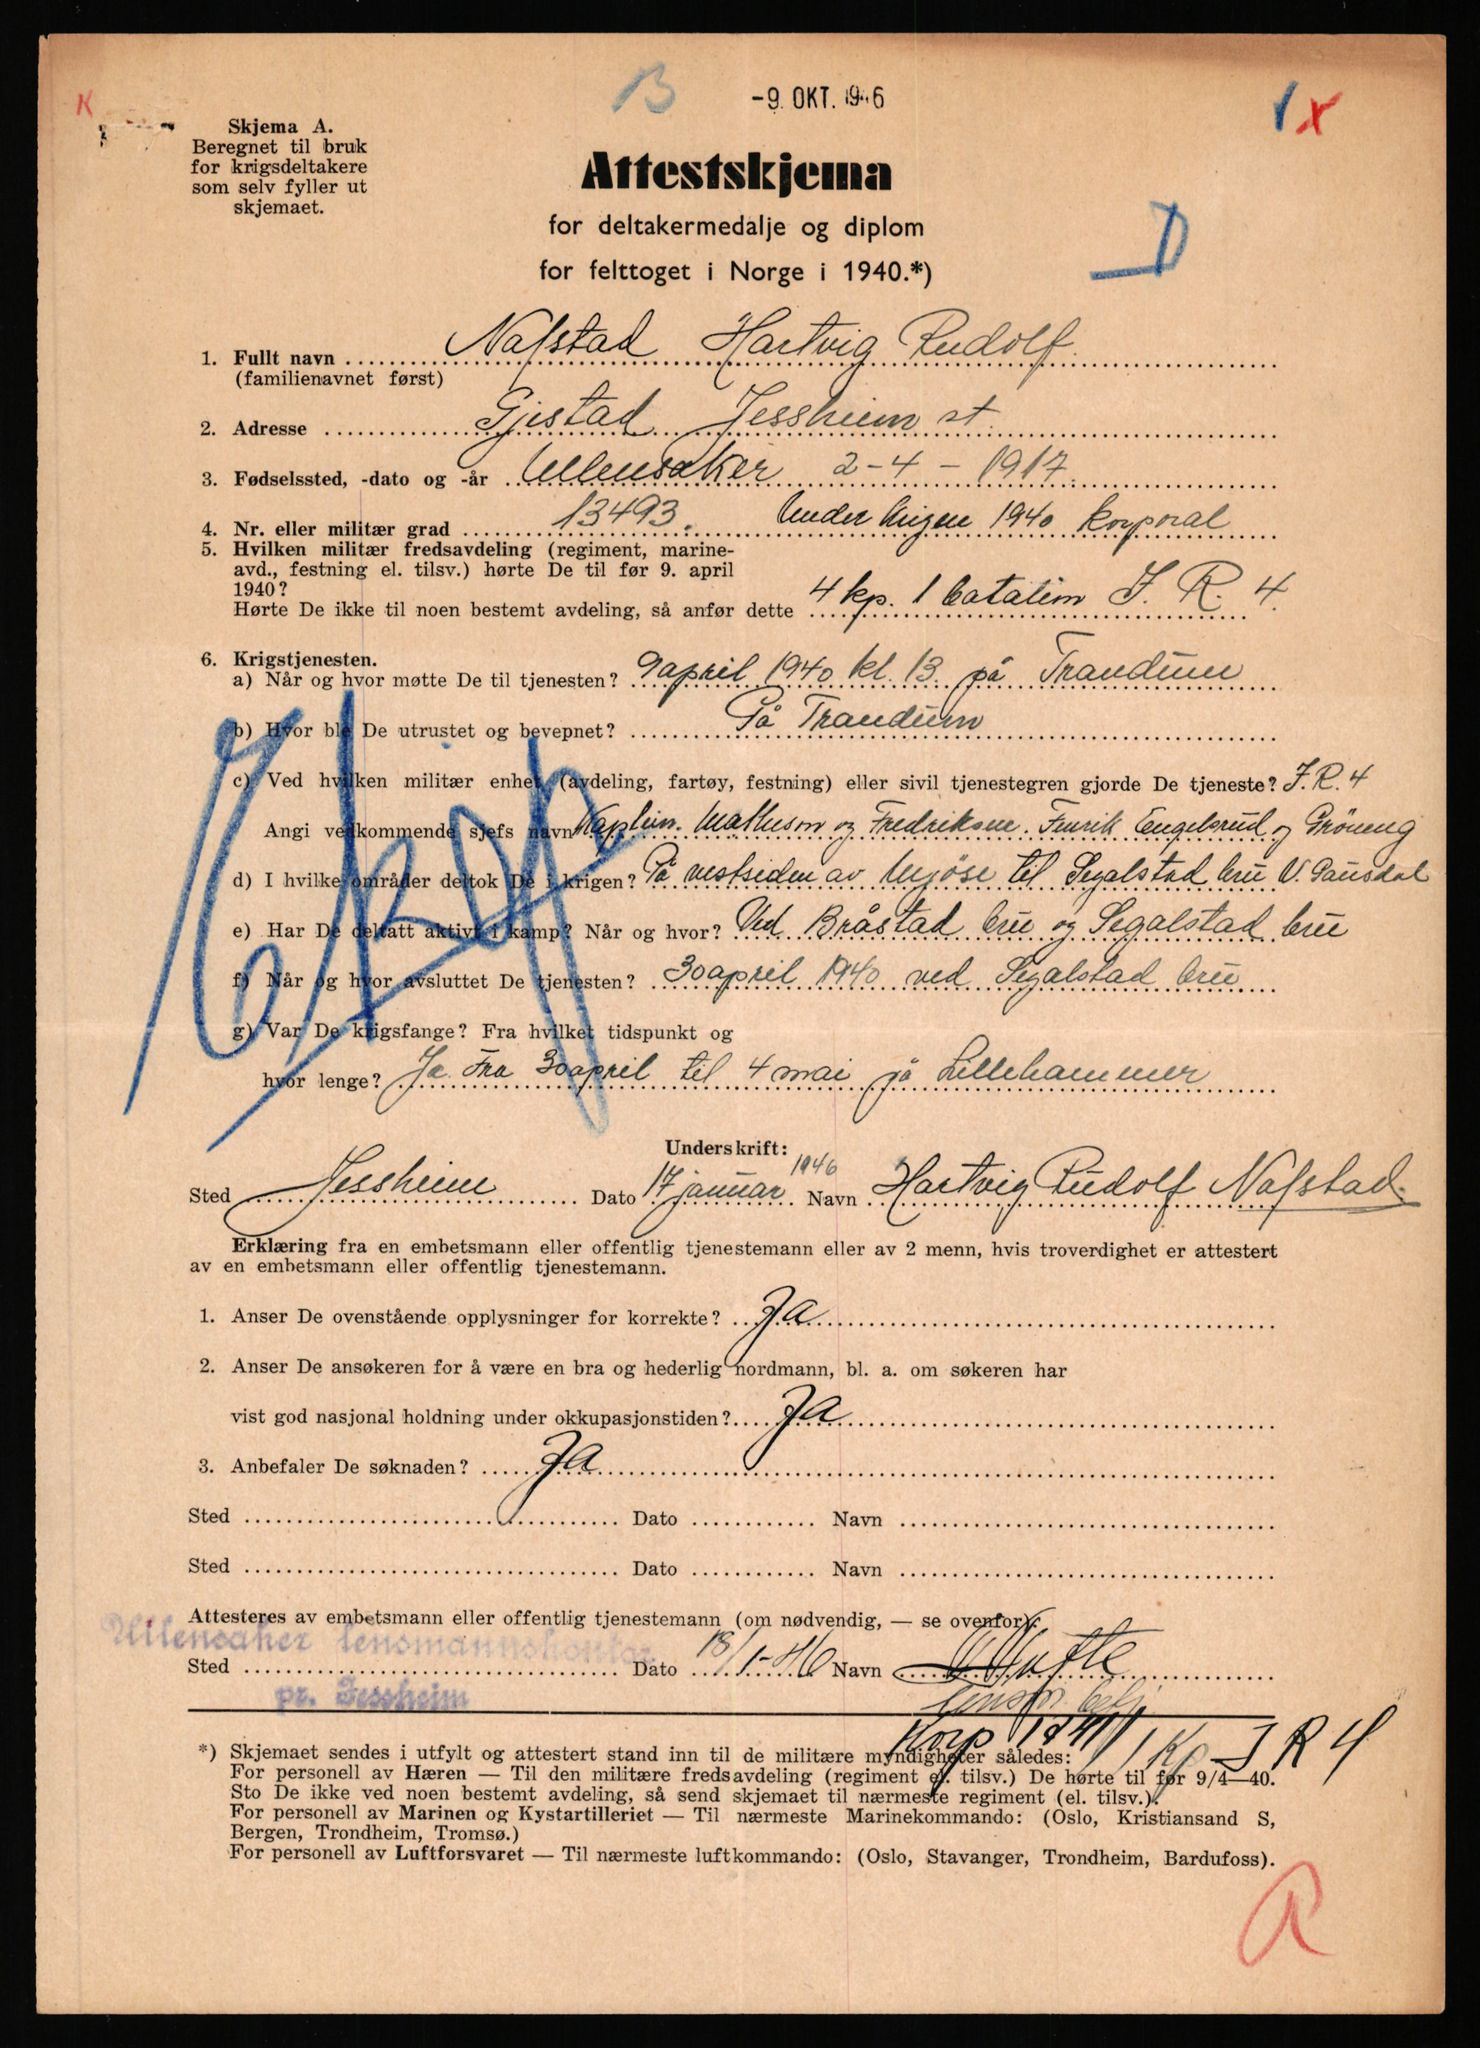 B
-9. OKT. 1946
K
Skjema A.
Beregnet til bruk
for krigsdeltakere
som selv fyller ut
skjemaet.
Attestskjema
for deltakermedalje og diplom
for felttoget i Norge i 1940.*)
D
1. Fullt navn Nafstad Hartvig Rudolf
(familienavnet først)
2. Adresse Gjestad Jessheim st.
3. Fødselssted, -dato og -år Ullensaker 2-4-1917
4. Nr. eller militær grad 13493. Under krigen 1940 korporal
5. Hvilken militær fredsavdeling (regiment, marine-
avd., festning el. tilsv.) hørte De til før 9. april
1940?
Hørte De ikke til noen bestemt avdeling, så anfør dette 4 kp. 1 bataljon I. R. 4.
6. Krigstjenesten.
a) Når og hvor møtte De til tjenesten? 9april 1940 kl. 13 på Trandum
b) Hvor ble De utrustet og bevepnet? På Trandum
c) Ved hvilken militær enhet (avdeling, fartøy, festning) eller sivil tjenestegren gjorde De tjeneste? I.R.4
Angi vedkommende sjefs navn Kaptein. Matheson og Fredriksen. Fenrik Engelsrud og Gröneng
d) I hvilke områder deltok De i krigen? På vestsiden av Mjøse til Segalstad bru V. Gausdal
e) Har De deltatt aktivt i kamp? Når og hvor? Ved Bråstad bru og Segalstad bru
f) Når og hvor avsluttet De tjenesten? 30april 1940 ved Segalstad bru
g) Var De krigsfange? Fra hvilket tidspunkt og
hvor lenge? Ja Fra 30april til 4 mai på Lillehammer
Underskrift:
Sted Jessheim Dato 17 januar 1946 Navn Hartvig Rudolf Nafstad
Erklæring fra en embetsmann eller offentlig tjenestemann eller av 2 menn, hvis troverdighet er attestert
av en embetsmann eller offentlig tjenestemann.
1. Anser De ovenstående opplysninger for korrekte? Ja
2. Anser De ansøkeren for å være en bra og hederlig nordmann, bl. a. om søkeren har
vist god nasjonal holdning under okkupasjonstiden? Ja
3. Anbefaler De søknaden? Ja
Sted Dato Navn
Sted Dato Navn
Attesteres av embetsmann eller offentlig tjenestemann (om nødvendig, — se ovenfor):
Ullensaker lensmannskontor
Sted Dato 18/1-46 Navn
pr. Jessheim
Korp 1 Kp IR 4
*) Skjemaet sendes i utfylt og attestert stand inn til de militære myndigheter således:
For personell av Hæren — Til den militære fredsavdeling (regiment el. tilsv.) De hørte til før 9/4—40.
Sto De ikke ved noen bestemt avdeling, så send skjemaet til nærmeste regiment (el. tilsv.).
For personell av Marinen og Kystartilleriet — Til nærmeste Marinekommando: (Oslo, Kristiansand S,
Bergen, Trondheim, Tromsø.)
For personell av Luftforsvaret — Til nærmeste luftkommando: (Oslo, Stavanger, Trondheim, Bardufoss).
R